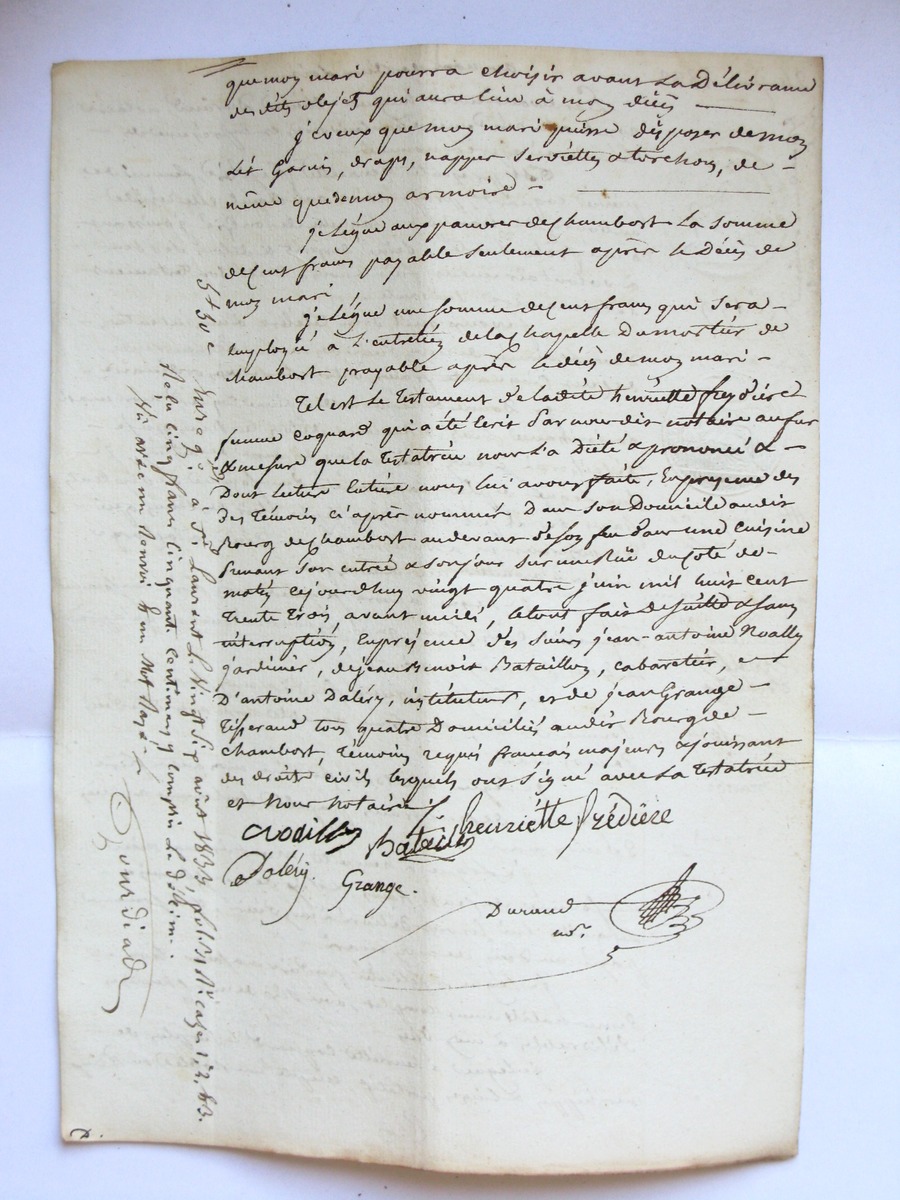 que mon mari pourra choisir avant la Délivrance
des dits objets qui aura lieu à mon décès
je veux que mon mari puisse disposer de mon
Lit Garni, draps, nappes serviettes & torchons, de
même que de mon armoire
je Légue aux pauvres de Chambost La somme
de Cent francs payable seulement après le Décès de
mon mari
je Légue une somme de Cent francs qui sera
employé à L'entretien de la Chapelle Du mortier de
chambost payable après le décès de mon mari
Tel est Le Testament de ladite henriette frédière
femme Coquard qui a été écrit Par nous dit notaire au fur
& mesure que la Testatrice nous l'a Dicté & prononcé &
Dont Lecture Entière nous lui avons faite, En présence des
Des Témoins ci après nommés Dans Son Domicile audit
Bourg de Chambost au devant de son feu dans une cuisine
Prenant son entrée & son jour sur une Rue du Coté de
matin cejourdhuy vingt quatre juin mil huit cent
Trente Trois, avant midi, le tout fait de suitte & sans
interruption, En présence des sieurs jean-antoine Noailly
jardinier, de jean Benoit Bataillon, cabaretier, et
D'antoine Daléry, instituteur, et de jean Grange
Tisserand tous quatre Domiciliés audit Bourg de
chambost, Témoins requis français majeurs & jouissant
des droits civils lesquels ont Signé avec La Testatrice
et Nous Notaire
Noailly Bataillon henriétte frédière
Daléry. Grange.
Durand
no.re
5f 50 c
Enreg. à St Laurent Le Vingt Six août 1833 folio Vo cases 1, 2, & 3.
Reçu cinq francs cinquante centimes y compris Le décime.
D.